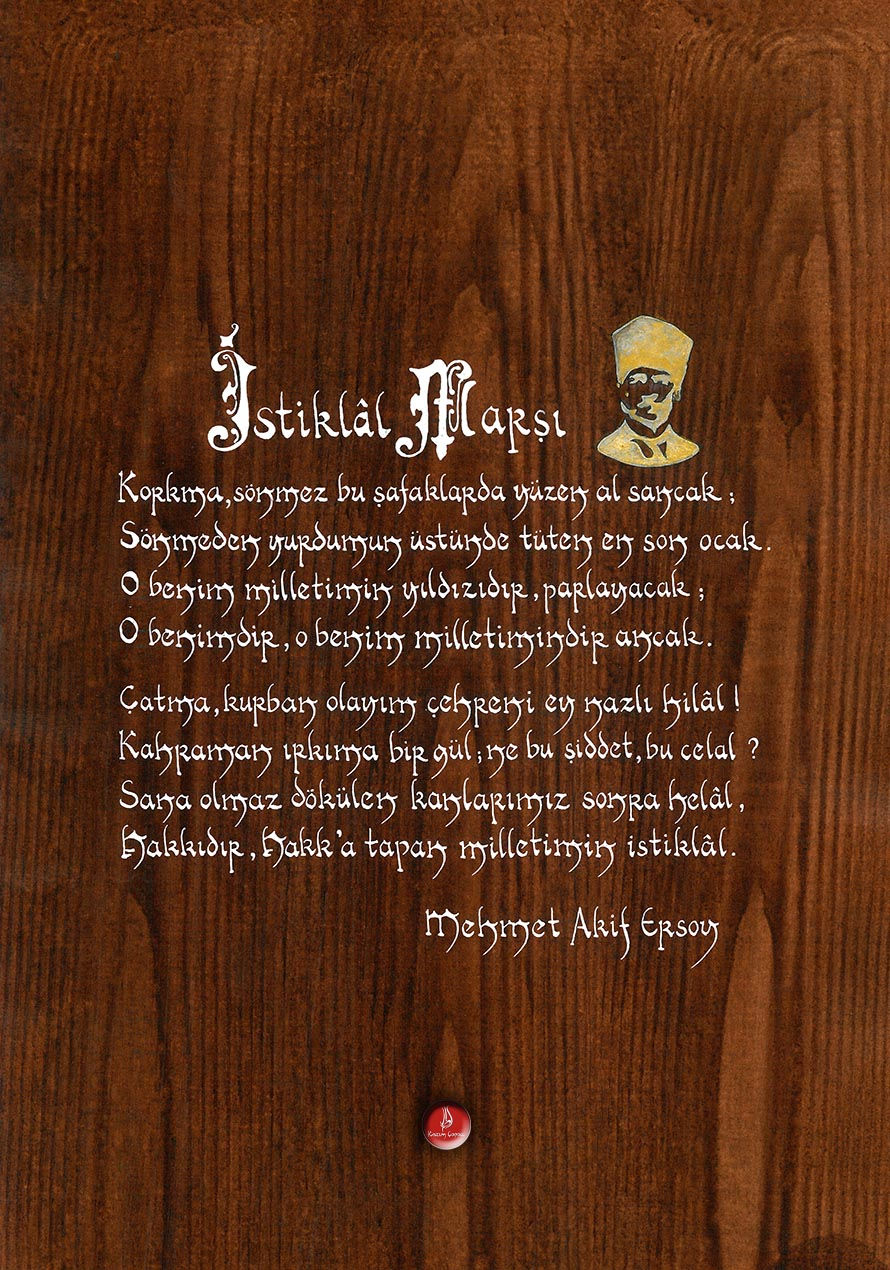 İstiklâl Marşı
Korkma, sönmez bu şafaklarda yüzen al sancak ;
Sönmeden yurdumun üstünde tüten en son ocak.
O benim milletimin yıldızıdır, parlayacak ;
O benimdir, o benim milletimindir ancak.
Çatma, kurban olayım çehreni ey nazlı hilâl !
Kahraman ırkıma bir gül ; ne bu şiddet, bu celal ?
Sana olmaz dökülen kanlarımız sonra helâl,
Hakkıdır, Hakk'a tapan milletimin istiklâl.
Mehmet Akif Ersoy